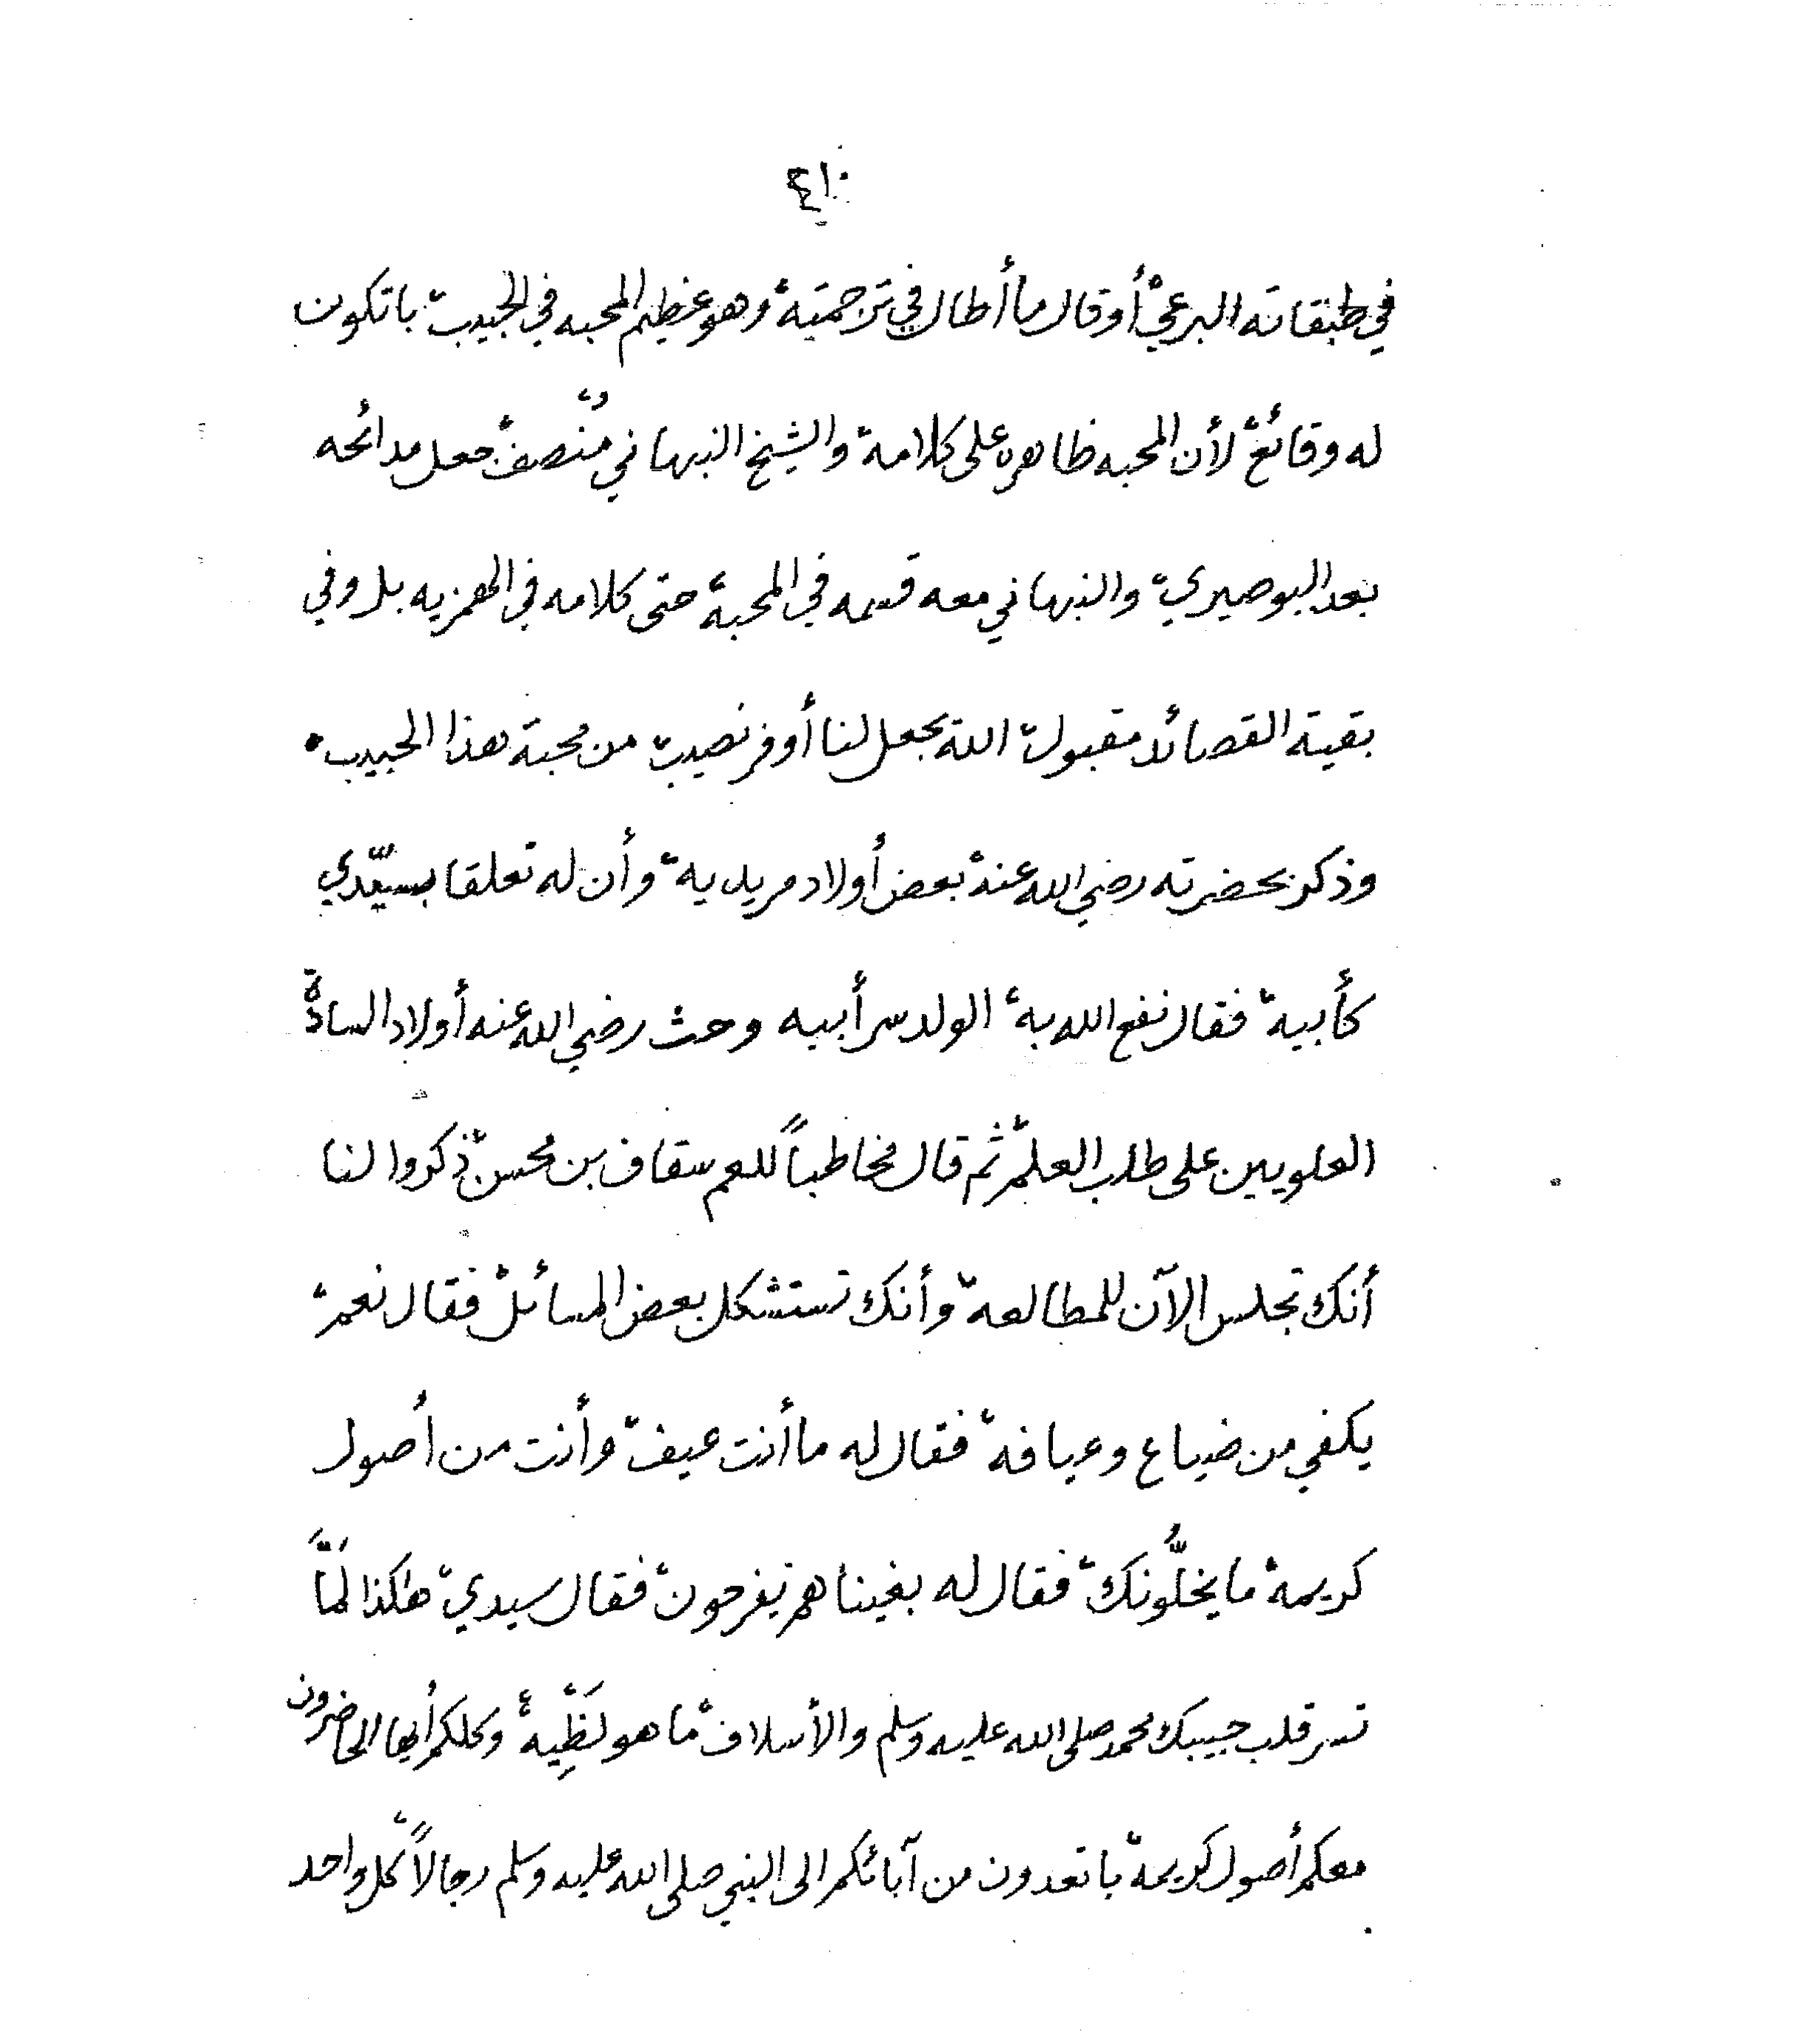 ٤١٠
في طبقاته البرعيْ أو قال ما أطال في ترجمتهْ وهو عظيم المحبه في الحبيبْ باتكون
له وقائعْ لأن المحبه ظاهره على كلامهْ والشيخ النبهاني مُنْصِفْ جعل مدائحه
بعد البوصيريْ والنبهاني معه قسمه في المحبهْ حتى كلامه في الهمزيه بل وفي
بقية القصائد مقبولْ الله يجعل لنا أوفر نصيبْ من محبة هذا الحبيب•
وذكر بحضرته رضي الله عنهْ بعض أولاد مريديهْ وأن له تعلقا بسيّدي
كأبيهْ فقال نفع الله بهْ الولد سر أبيه وحث رضي الله عنه أولاد السادةْ
العلويين على طلب العلمْ ثم قال مخاطباً للعم سقاف بن محسنْ ذكروا لنا
أنك تجلس الآن للمطالعهْ وأنك تستشكل بعض المسائلْ فقال نعمْ
يكفي من ضياع وعيافهْ فقال له ما أنت عيفْ وأنت من أصول
كريمهْ ما يخلُّونكْ فقال له بغيناهم يفرحونْ فقال سيديْ هٰكذا لَمَّا
تسر قلب حبيبك محمد صلى الله عليه وسلم والأسلافْ ما هو لَظِّيهْ وكلكم أيها الحاضرون
معكم أصول كريمهْ باتعدون من آبائكم الى النبي صلى الله عليه وسلم رجالاً كل واحد